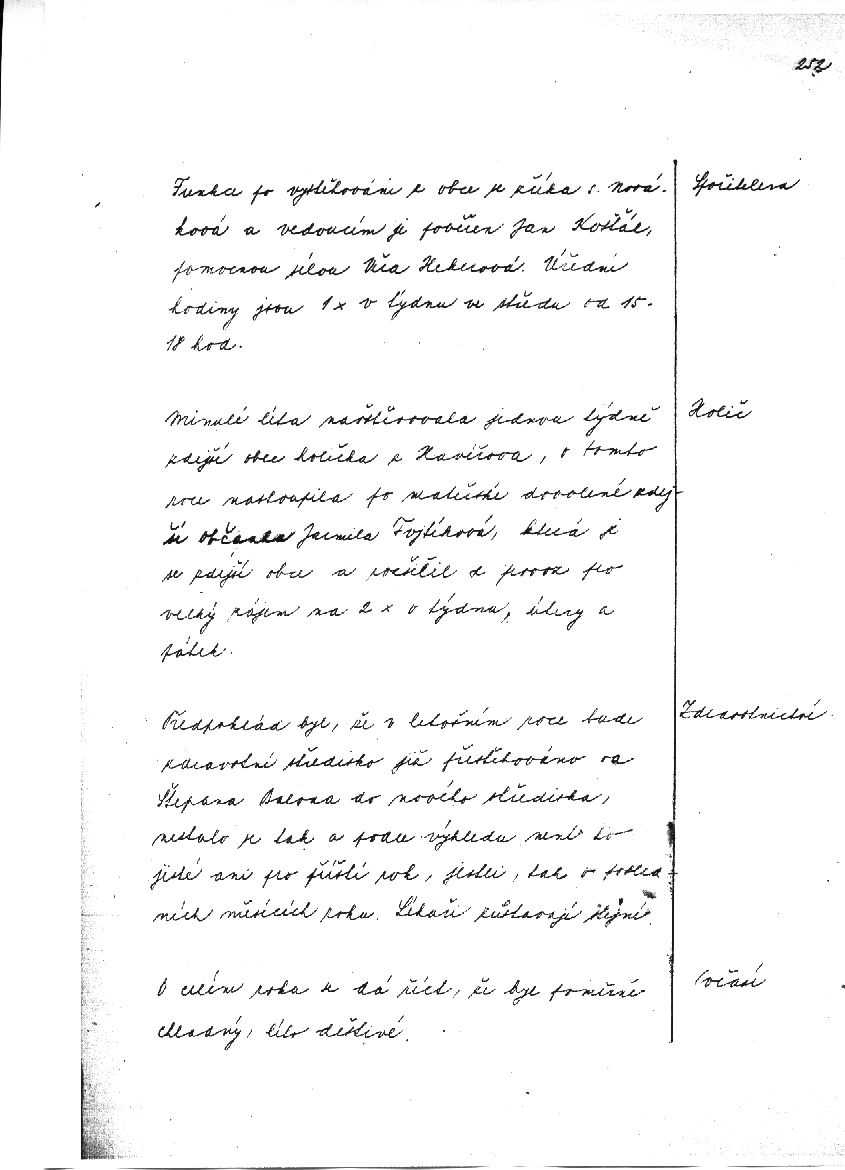 252
Spořitelna
Funkce po vystěhování z obce se zříka s. Nová-
ková a vedoucím je pověřen Jan Košťál,
pomocnou silou Věa Hekerová. Úřední
hodiny jsou 1 x v týdnu ve středu od 15-
18 hod.
Holič
Minulé léta navštěvovala jednou týdně
zdejší obec holička z Havířova, v tomto
roce nastoupila po mateřské dovolené zdej-
ší občanka Jarmila Fojtíková, která je
ze zdejší obce a rozšířil se provoz pro
velký zájem na 2 x v týdnu, úterý a
pátek.
Zdravotnictví
Předpoklad byl, že v letošním roce bude
zdravotní středisko již přestěhováno od
Štěpana Balona do nového střediska,
nestalo se tak a podle výhledu není to
jisté ani pro příští rok, jestli, tak v posled-
ních měsících roku. Lékaři zůstávají stejní.
Počasí
O celém roku se dá říct, že byl poměrně
chladný, léto deštivé.